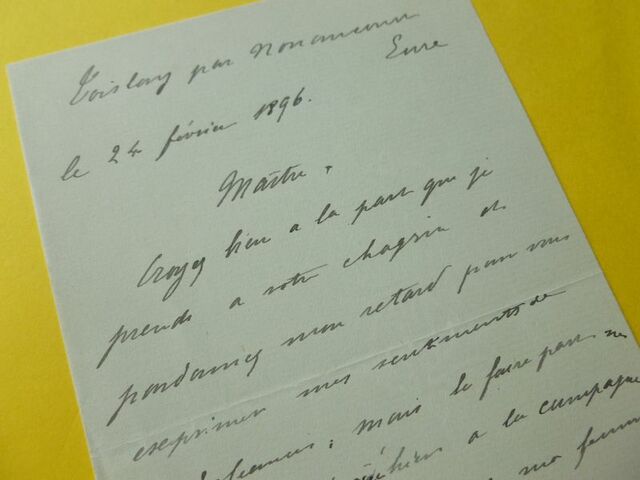 par Nonancourt
Eure
le 24 février 1896.
Maître,
Croyez bien a la part que je
prends a votre chagrin et
pardonnez mon retard pour vous
exprimer mes sentiments de
mais le faire part ne
a la campagne
ma femme